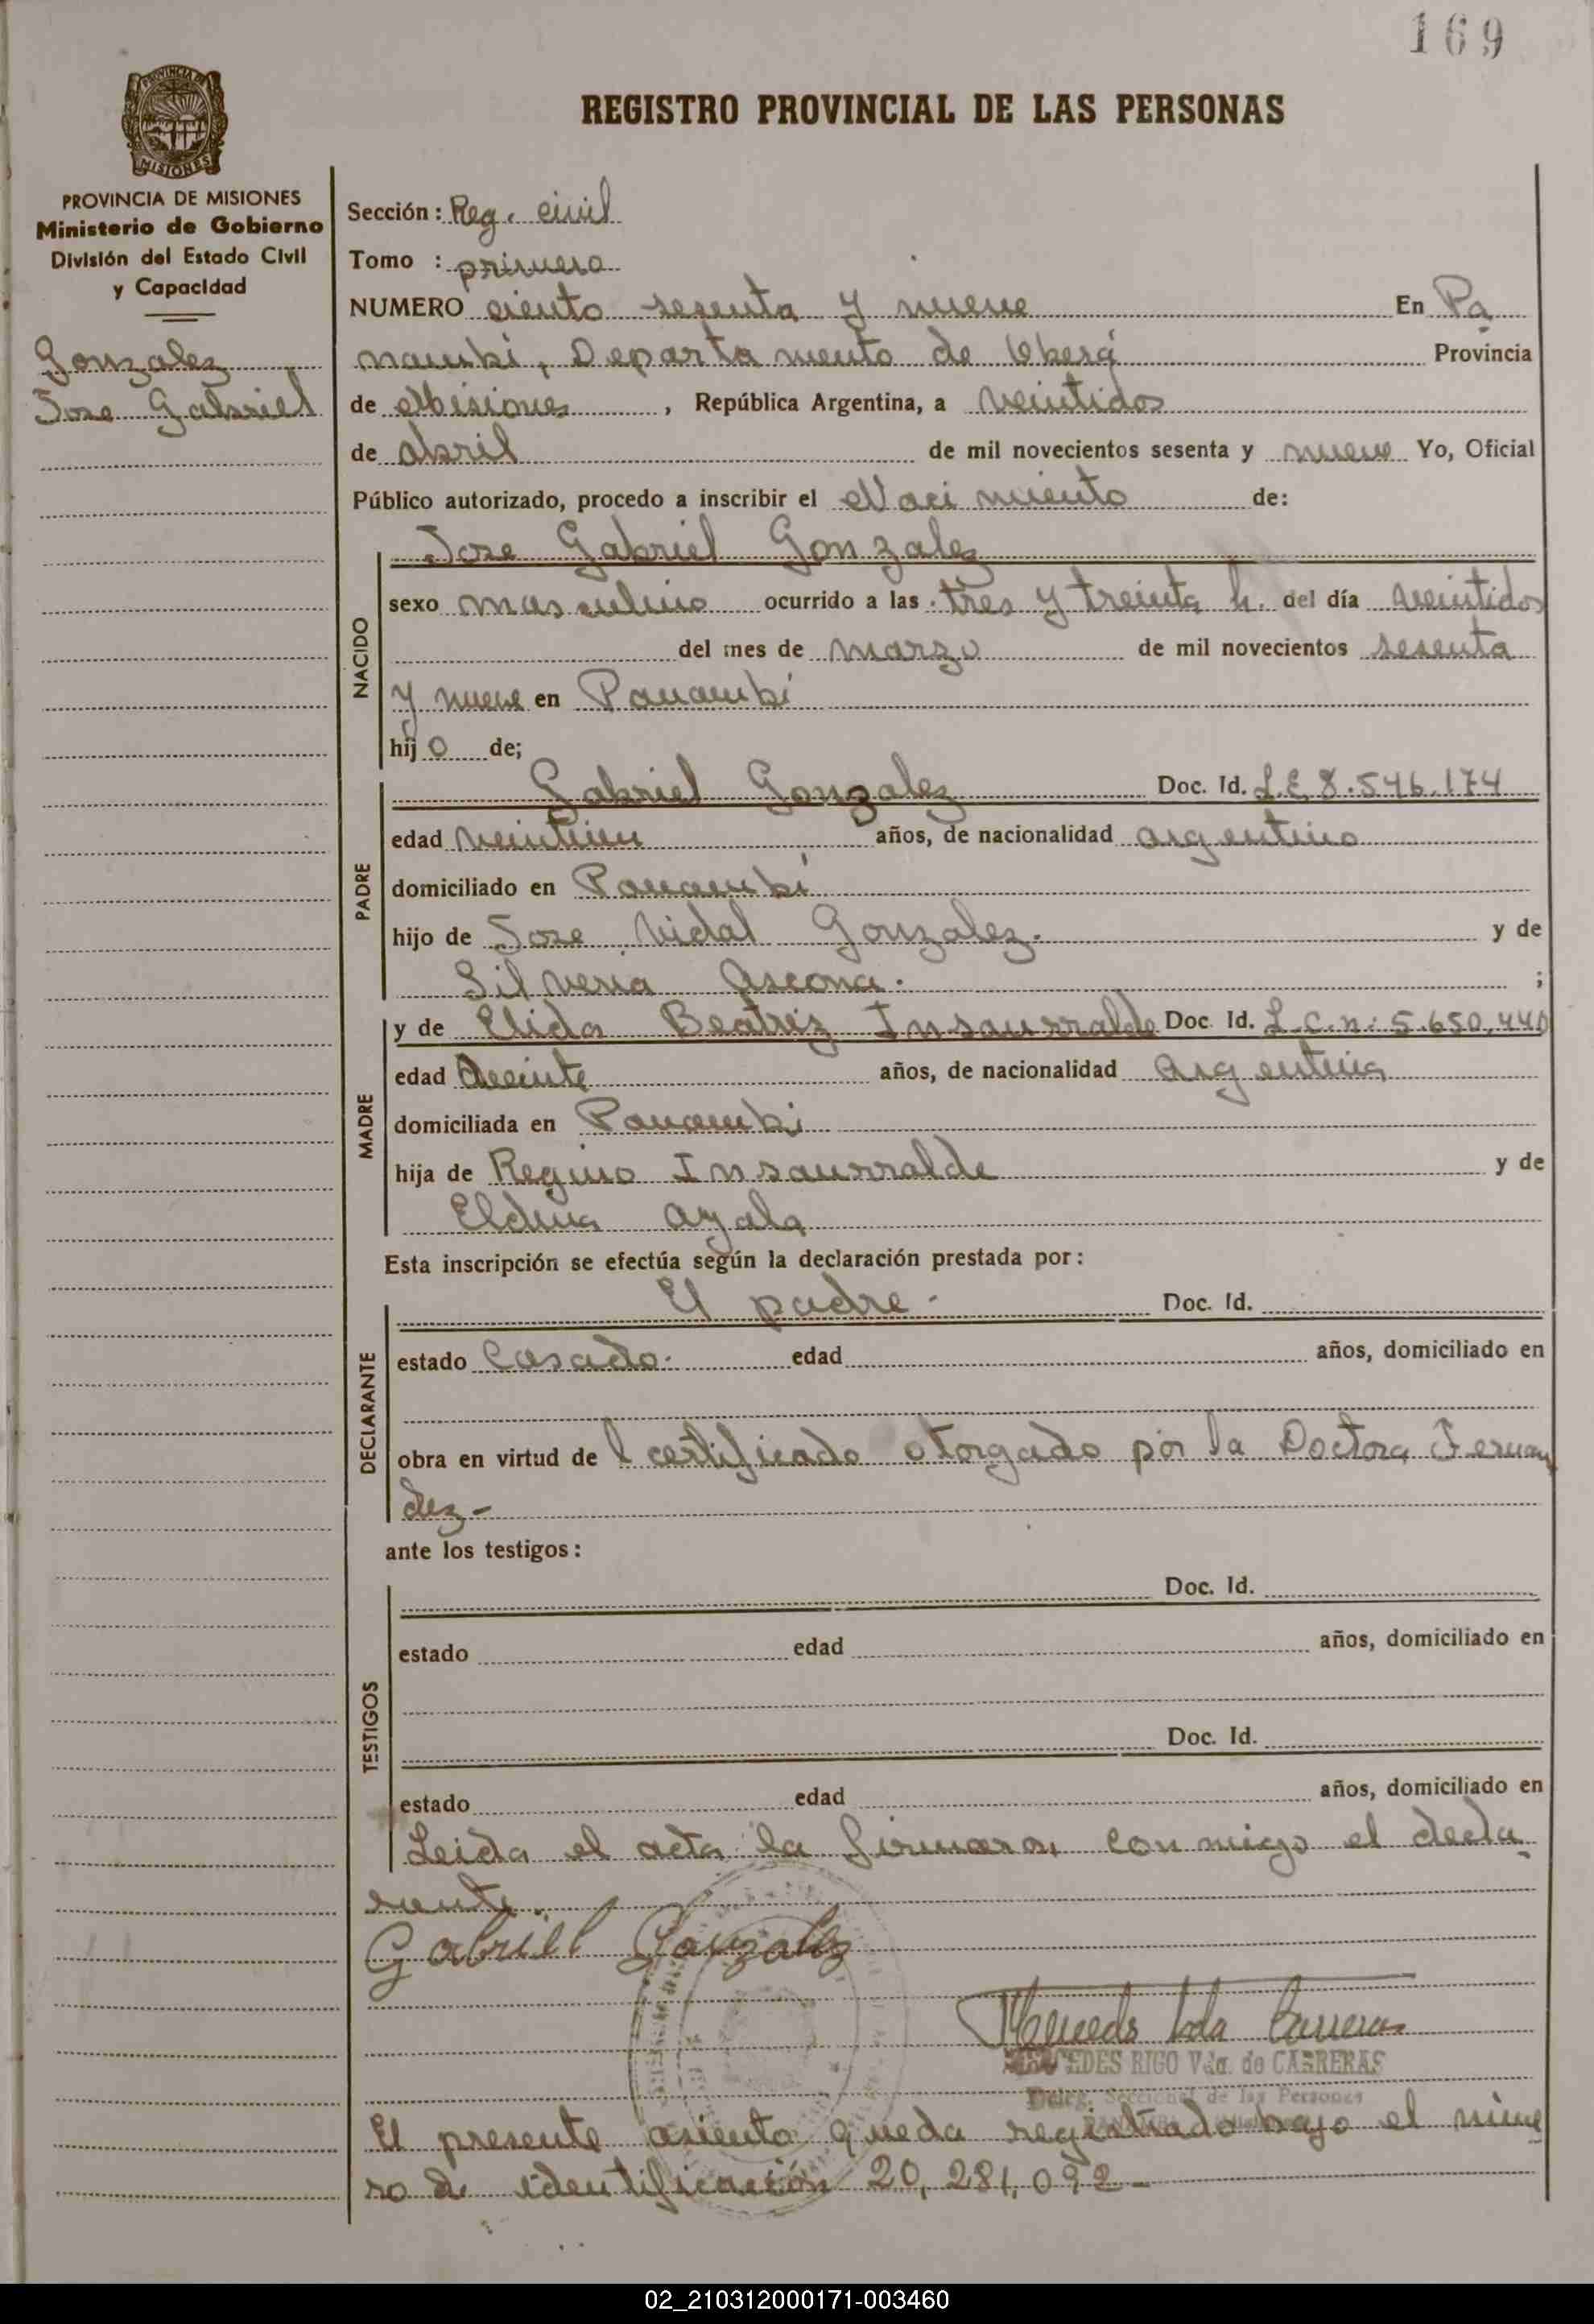 169
PROVINCIA DE MISIONES
REGISTRO PROVINCIAL DE LAS PERSONAS
PROVINCIA DE MISIONES
Ministerio de Gobierno
División del Estado Civil
y Capacidad
Gonzalez
Jose Gabriel
Sección: Reg. civil
Tomo : primero
NUMERO ciento sesenta y nueve En Pa
nambi, Departamento de Oberá Provincia
de Misiones, República Argentina, a veintidos
de abril de mil novecientos sesenta y nueve Yo, Oficial
Público autorizado, procedo a inscribir el Nacimiento de:
NACIDO
Jose Gabriel Gonzalez
sexo masculino ocurrido a las tres y treinta h. del día veintidos
del mes de marzo de mil novecientos sesenta
y nueve en Panambí
hijo de;
PADRE
Gabriel Gonzalez Doc. Id. L.E 8.546.174
edad veintiun años, de nacionalidad argentino
domiciliado en Panambí
hijo de Jose Vidal Gonzalez. y de
Silveria Ascona. ;
MADRE
y de Elida Beatriz Insaurralde Doc. Id. L.C.n: 5.650.440
edad veinte años, de nacionalidad Argentina
domiciliada en Panambi
hija de Regino Insaurralde y de
Eldina Ayala
Esta inscripción se efectúa según la declaración prestada por:
DECLARANTE
El padre. Doc. Id.
estado Casado. edad años, domiciliado en
obra en virtud de l certificado otorgado por la Doctora Fernan
dez-
ante los testigos:
TESTIGOS
Doc. Id.
estado edad años, domiciliado en
Doc. Id.
estado edad años, domiciliado en
Leida el acta la firmaron conmigo el decla
rante.
Gabriel Gonzalez
Mercedes Vda Carreras
MERCEDES RIGO Vda. de CARRERAS
Deleg. Seccional de las Personas
El presente asiento queda registrado bajo el núme
ro de identificación 20,281,092-
02_210312000171-003460